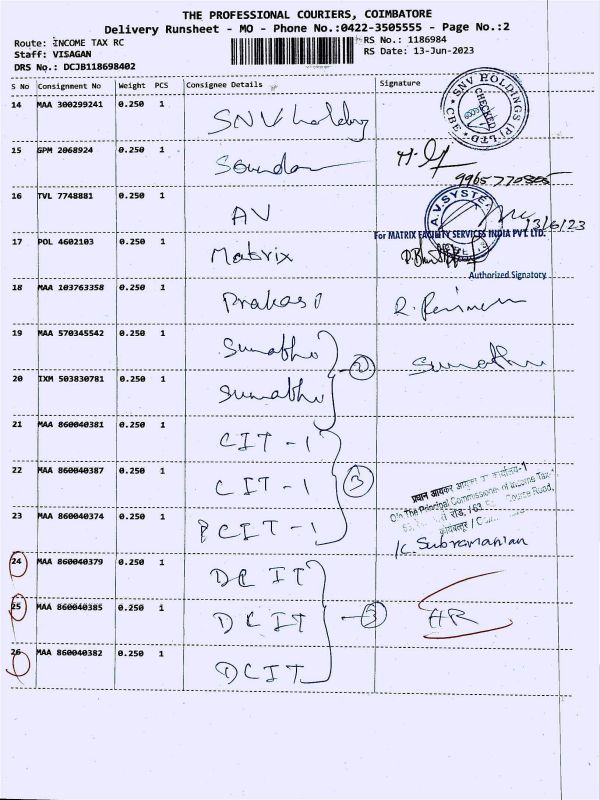 THE PROFESSIONAL COURIERS, COIMBATORE
Delivery Runsheet - MO - Phone No.:0422-3505555 - Page No.:2
Route: INCOME TAX RC
RS No.: 1186984
Staff: VISAGAN
RS Date: 13-Jun-2023
DRS No.: DCJB118698402
S No Consignment No Weight PCS Consignee Details Signature
14 MAA 300299241 0.250 1 SNV holding
SNV HOLDINGS (P) LTD CHECKED
15 GPM 2068924 0.250 1
9965770805
16 TVL 7748881 0.250 1 AV
A.V.SYSTE
13/6/23
17 POL 4602103 0.250 1 Matrix
For MATRIX FACILITY SERVICES INDIA PVT. LTD.
Authorized Signatory
18 MAA 103763358 0.250 1
19 MAA 570345542 0.250 1 Sumathi
20 IXM 503830781 0.250 1 Sumathi
2
21 MAA 860040381 0.250 1 CIT - 1
22 MAA 860040387 0.250 1 CIT - 1
3
23 MAA 860040374 0.250 1 PCIT - 1
O/o The Principal Commissioner of Income Tax-1
Course Road,
K. Subramanian
24 MAA 860040379 0.250 1 DCIT
25 MAA 860040385 0.250 1 DCIT
3
HR
26 MAA 860040382 0.250 1 DCIT